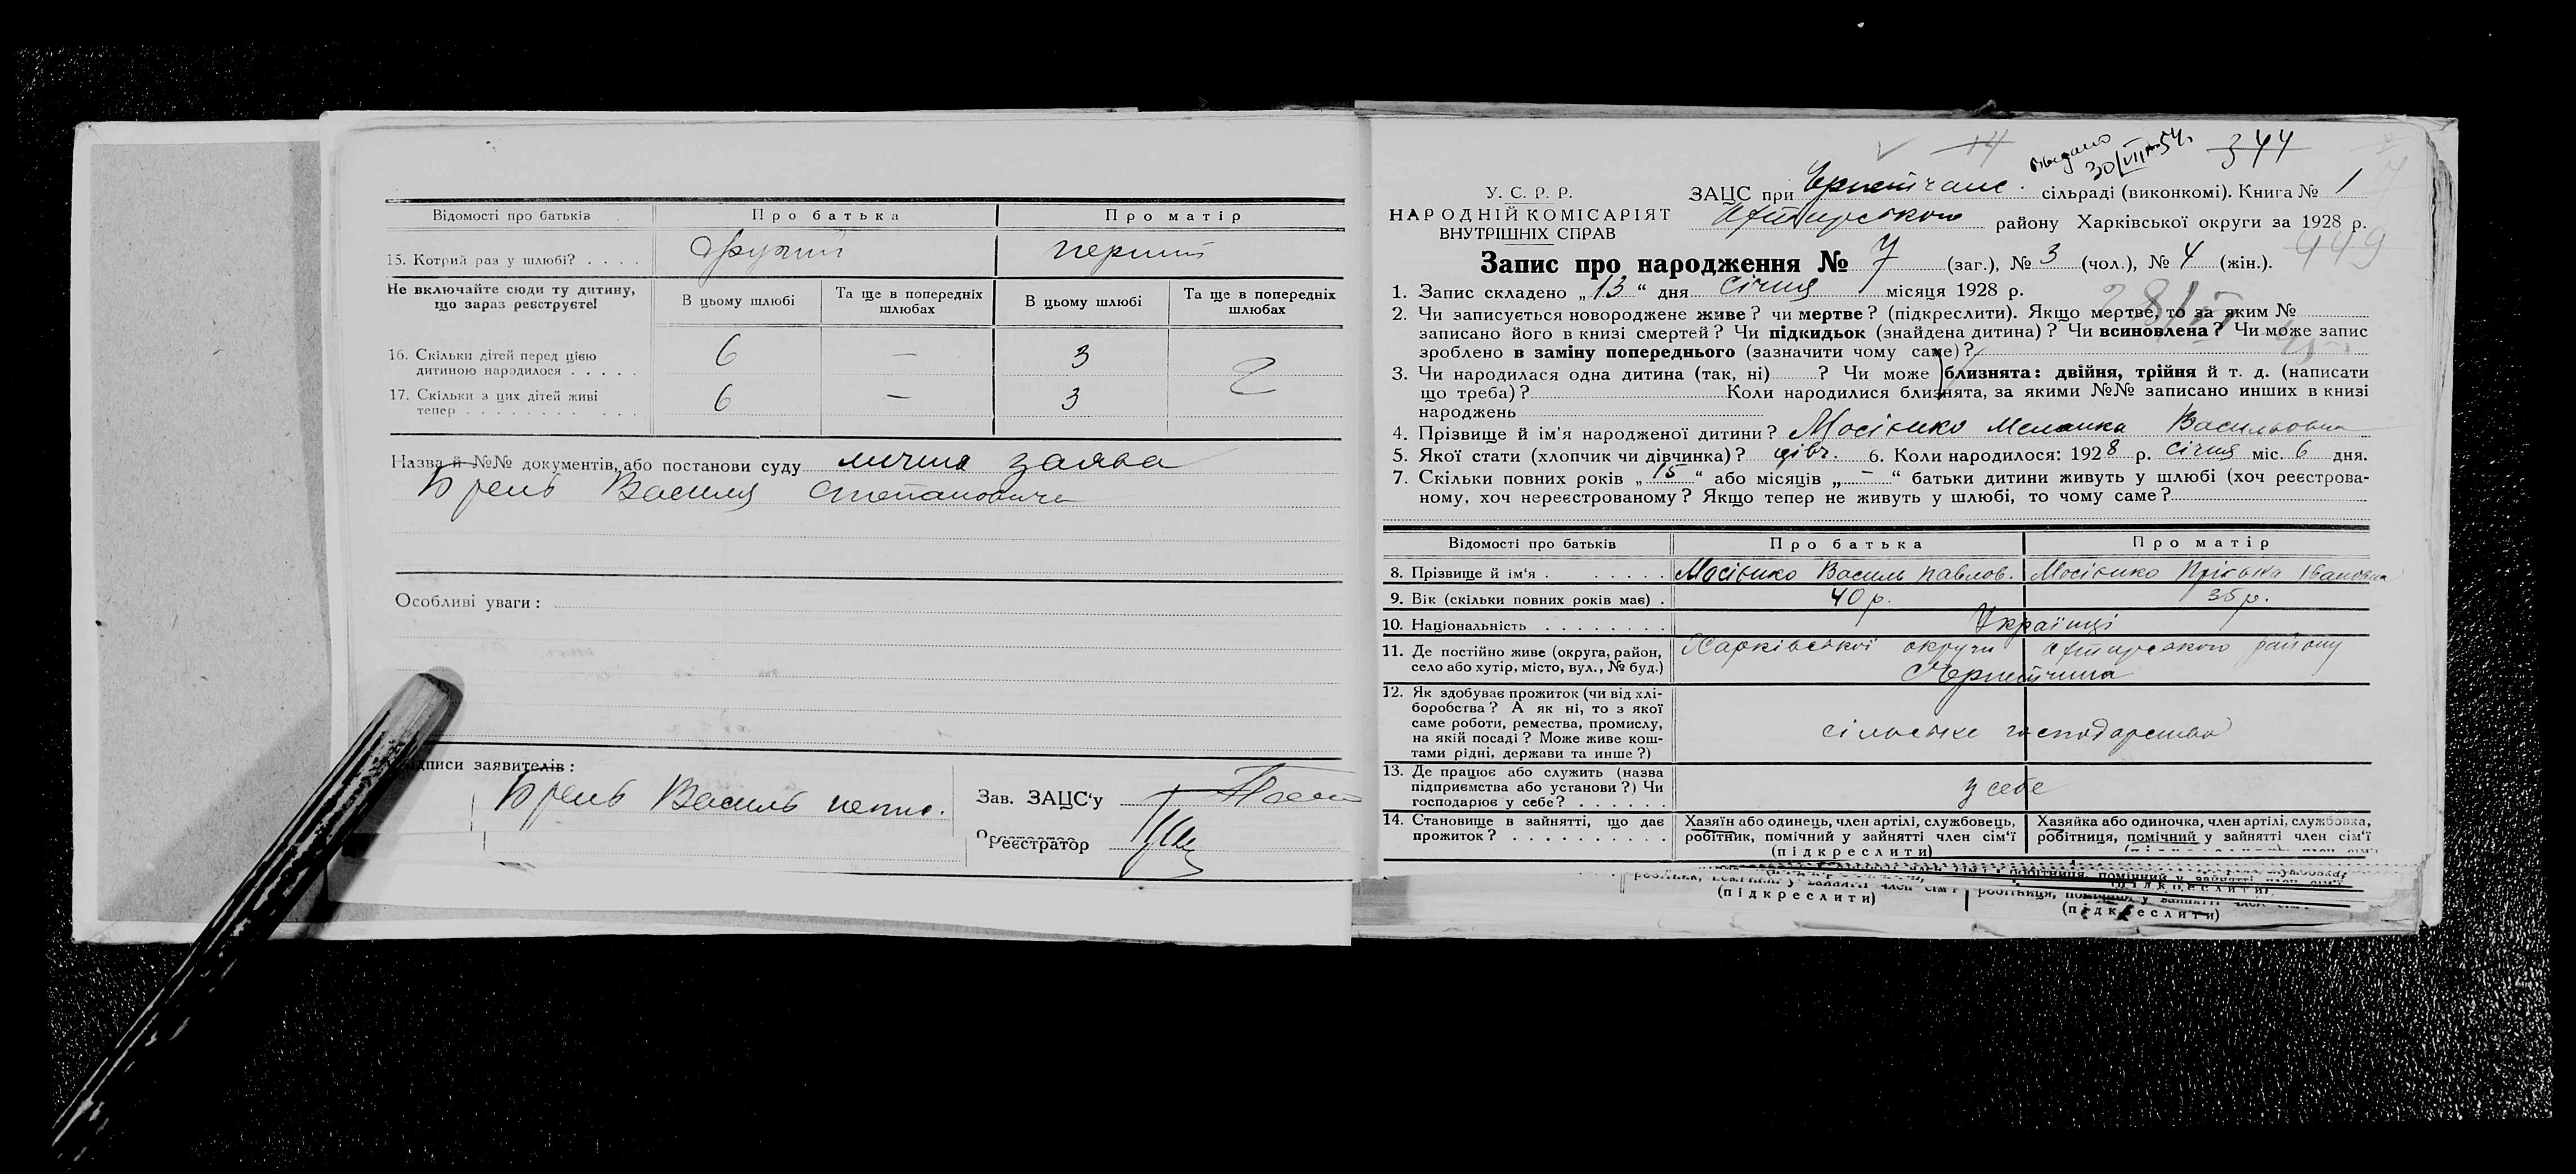 Відомості про батьків Про батька Про матір
15. Котрий раз у шлюбі? другий перший
Не включайте сюди ту дитину, що зараз реєструєте! В цьому шлюбі Та ще в попередніх шлюбах В цьому шлюбі Та ще в попередніх шлюбах
16. Скільки дітей перед цією дитиною народилося 6 — 3
17. Скільки з цих дітей живі тепер 6 — 3
Назва й №№ документів, або постанови суду лична заява
Брень Василя Степановича
Особливі уваги:
підписи заявителів:
Брень Василь непис.
Зав. ЗАЦС'у
Реєстратор
14
видано
30/VII 54.
344
У. С. Р. Р.
НАРОДНІЙ КОМІСАРІЯТ
ВНУТРІШНІХ СПРАВ
ЗАЦС при сільраді (виконкомі). Книга № 1
району Харківської округи за 1928 р.
449
Запис про народження № 7 (заг.), № 3 (чол.), № 4 (жін.).
1. Запис складено „13“ дня січня місяця 1928 р.
2. Чи записується новороджене живе? чи мертве? (підкреслити). Якщо мертве, то за яким №
записано його в книзі смертей? Чи підкидьок (знайдена дитина)? Чи всиновлена? Чи може запис
зроблено в заміну попереднього (зазначити чому саме)?
3. Чи народилася одна дитина (так, ні) ? Чи може близнята: двійня, трійня й т. д. (написати
що треба)? Коли народилися близнята, за якими №№ записано инших в книзі
народжень
4. Прізвище й ім'я народженої дитини? Мосієнко Меланка Васильовна
5. Якої стати (хлопчик чи дівчинка)? дівч. 6. Коли народилося: 1928 р. січня міс. 6 дня.
7. Скільки повних років „15“ або місяців „—“ батьки дитини живуть у шлюбі (хоч реєстрова-
ному, хоч нереєстрованому? Якщо тепер не живуть у шлюбі, то чому саме?
Відомості про батьків Про батька Про матір
8. Прізвище й ім'я Мосієнко Василь Павлов. Мосієнко Пріська Івановна
9. Вік (скільки повних років має) 40 р. 35 р.
10. Національність Українці
11. Де постійно живе (округа, район, село або хутір, місто, вул., № буд.) Харківської округи району
12. Як здобуває прожиток (чи від хлі-боробства? А як ні, то з якої саме роботи, ремества, промислу, на якій посаді? Може живе кош-тами рідні, держави та инше?) сільське господарство
13. Де працює або служить (назва підприємства або установи?) Чи господарює у себе? у себе
14. Становище в зайнятті, що дає прожиток? Хазяїн або одинець, член артілі, службовець, робітник, помічний у зайнятті член сім'ї (підкреслити) Хазяйка або одиночка, член артілі, службовка, робітниця, помічний у зайнятті член сім'ї
(підкреслити) (підкреслити)